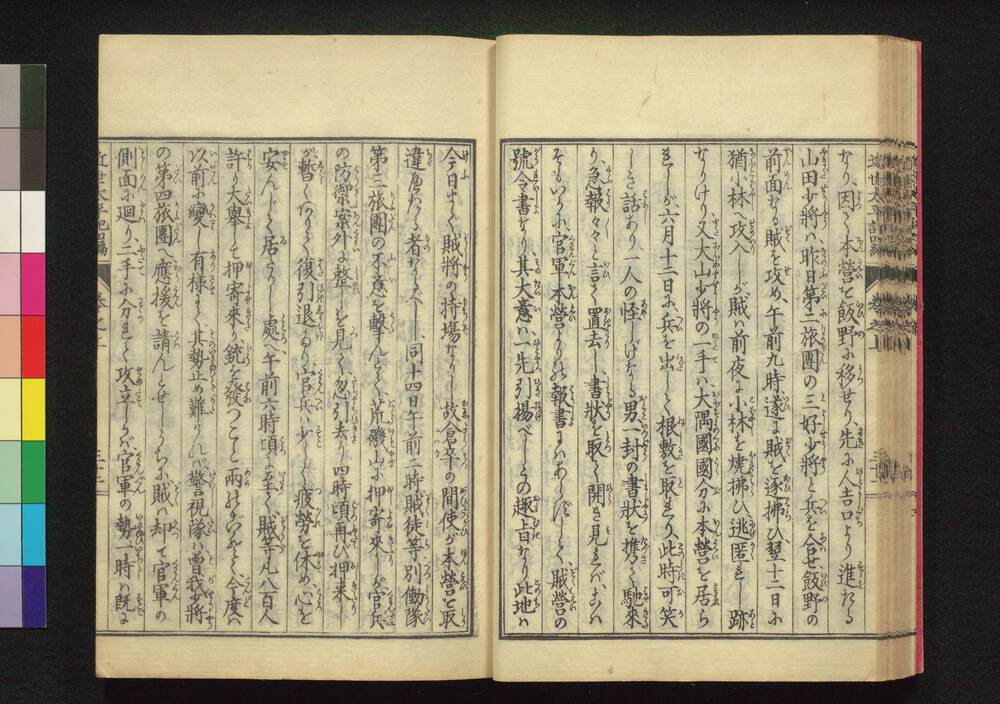 なり、因て本營を飯野に移せり、先に人吉口より進たる
山田少將ハ、昨日第二旅團の三好少將と兵を合せ飯野の
前面なる賊を攻め、午前九時、遂に賊を逐拂ひ、翌十二日に
猶小林へ攻入しが賊ハ前夜に小林を燒拂ひ逃匿れし跡
なりけり、又大山少將の一手ハ、大隅國國分に本營を居ら
れしが六月十二日に、兵を出して根敷を取れり、此時可笑
しき話あり一人の怪しげなる男、一封の書狀を携て馳來
り、急報々々と言て置去し、書狀を取て開き見れバ、こハ
そもいかに、官軍本營よりの報書にハあらずして、賊營の
號令書なり、其大意ハ、一先引揚べしとの趣旨なり此地ハ
今日まで賊將の持場なりし故倉卒の間使が本營を取
違へたる者なるべし、同十四日午前二時、賊徒等別働隊
第三旅團の不意を擊んとて荒磯山に押寄來しが官兵
の防禦案外に整しを見て、忽引去り四時頃再び押來し
が暫くにして復引退けり、官兵ハ少しく疲勞を休め、心を
安んじて居たりし處へ、午前六時頃に至て、賊等凡八百人
許り大舉して押寄來り銃を發つこと雨の如く、今度ハ
以前に變りし有樣にて、其勢止め難けれバ、警視隊ハ曾我少將
の第四旅團へ應援を請んとせしうちに賊ハ却て官軍の
側面に廻り、二手に分れて攻立しかバ官軍の勢一時ハ既に